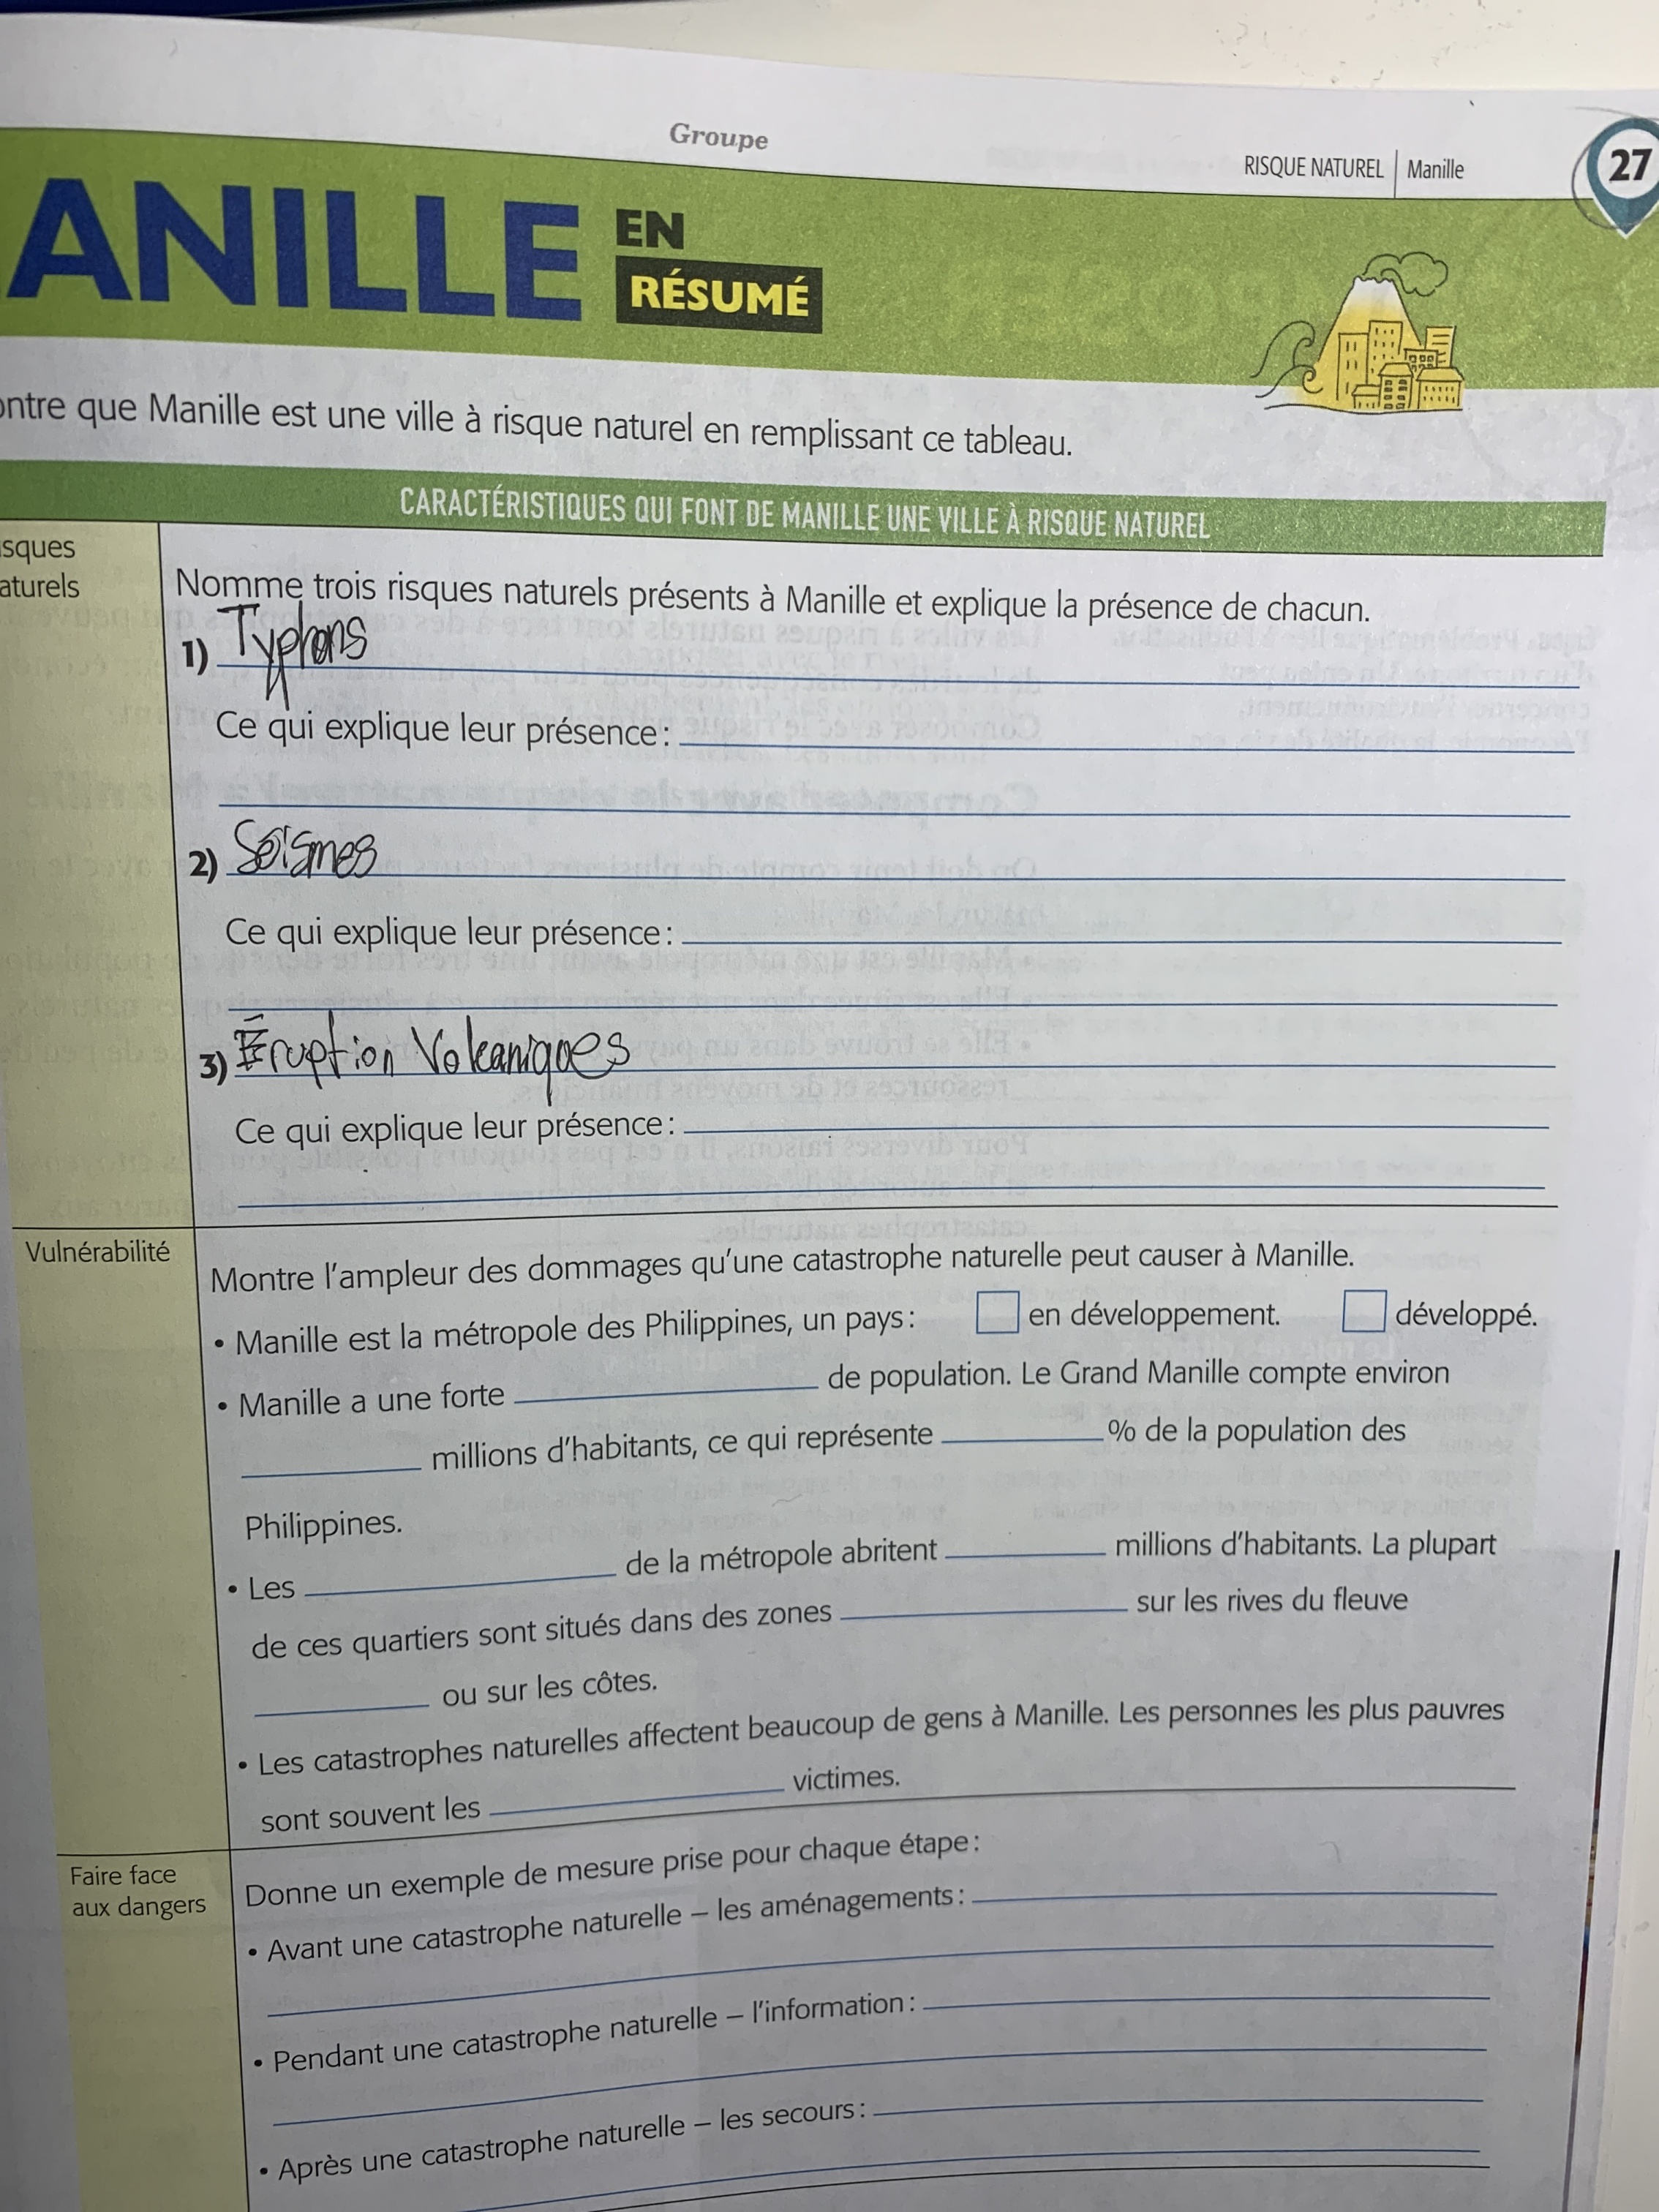 Groupe
RISQUE NATUREL | Manille
27
ANILLE EN
RÉSUMÉ
ontre que Manille est une ville à risque naturel en remplissant ce tableau.
CARACTÉRISTIQUES QUI FONT DE MANILLE UNE VILLE À RISQUE NATUREL
isques
aturels
Nomme trois risques naturels présents à Manille et explique la présence de chacun.
1) Typhons
Ce qui explique leur présence :
2) Séismes
Ce qui explique leur présence :
3) Éruption Volcaniques
Ce qui explique leur présence :
Vulnérabilité
Montre l'ampleur des dommages qu'une catastrophe naturelle peut causer à Manille.
• Manille est la métropole des Philippines, un pays : en développement. développé.
• Manille a une forte de population. Le Grand Manille compte environ
millions d'habitants, ce qui représente % de la population des
Philippines.
• Les de la métropole abritent millions d'habitants. La plupart
de ces quartiers sont situés dans des zones sur les rives du fleuve
ou sur les côtes.
• Les catastrophes naturelles affectent beaucoup de gens à Manille. Les personnes les plus pauvres
sont souvent les victimes.
Faire face
aux dangers
Donne un exemple de mesure prise pour chaque étape :
• Avant une catastrophe naturelle – les aménagements :
• Pendant une catastrophe naturelle – l'information :
• Après une catastrophe naturelle – les secours :